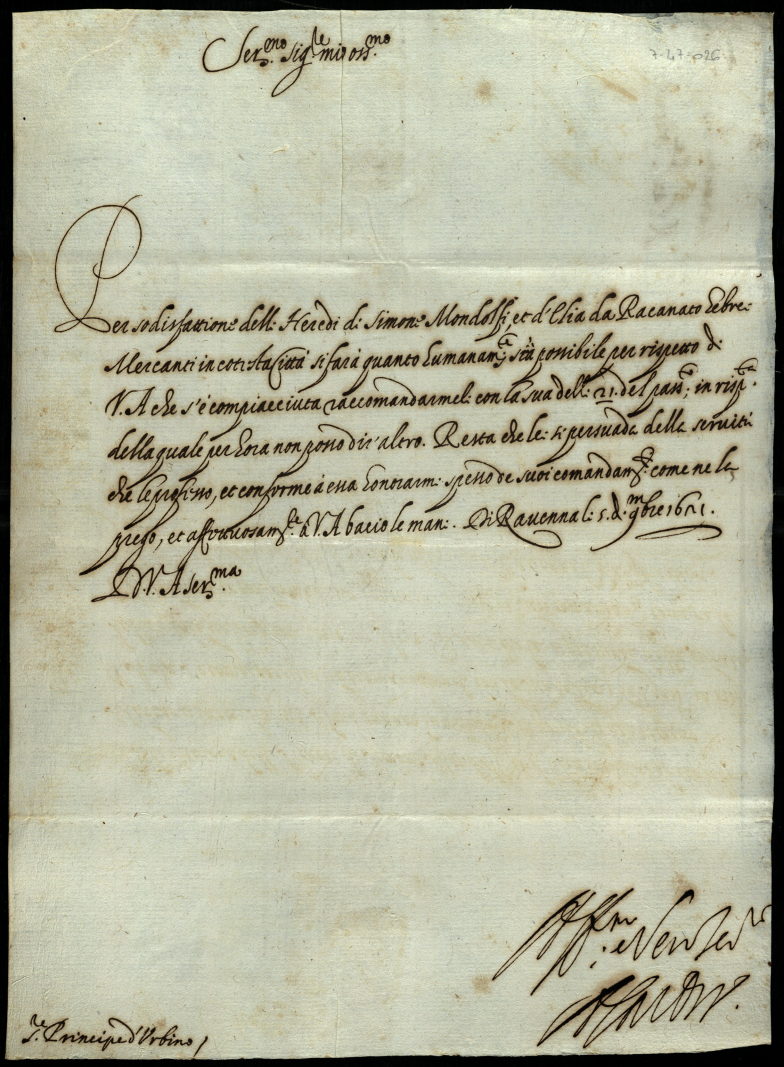 Ser.mo Sig.re mio oss.mo
7-47-026
Per sodisfattione dell: Heredi di Simone Mondolfi, et d'Elia da Racanato hebre:
Mercanti in cotesta Città si farà quanto humanam.te sia possibile per rispetto di
V. A che s'è compiacciuta raccomandarmeli con la sua dell: 21. del pass.to; in risp.ta
della quale per hora non posso dir' altro. Resta che le: si persuada della servitù
che le professo, et conforme à essa honorarmi spesso de suoi comandam.ti come ne la
prego, et affettuosam.te à V. A bacio le man:. Di Ravenna li 5. d: 9mbre 1621.
D. V. A Ser.ma
Aff.mo e Ser.re
S.re Principe d'Urbino